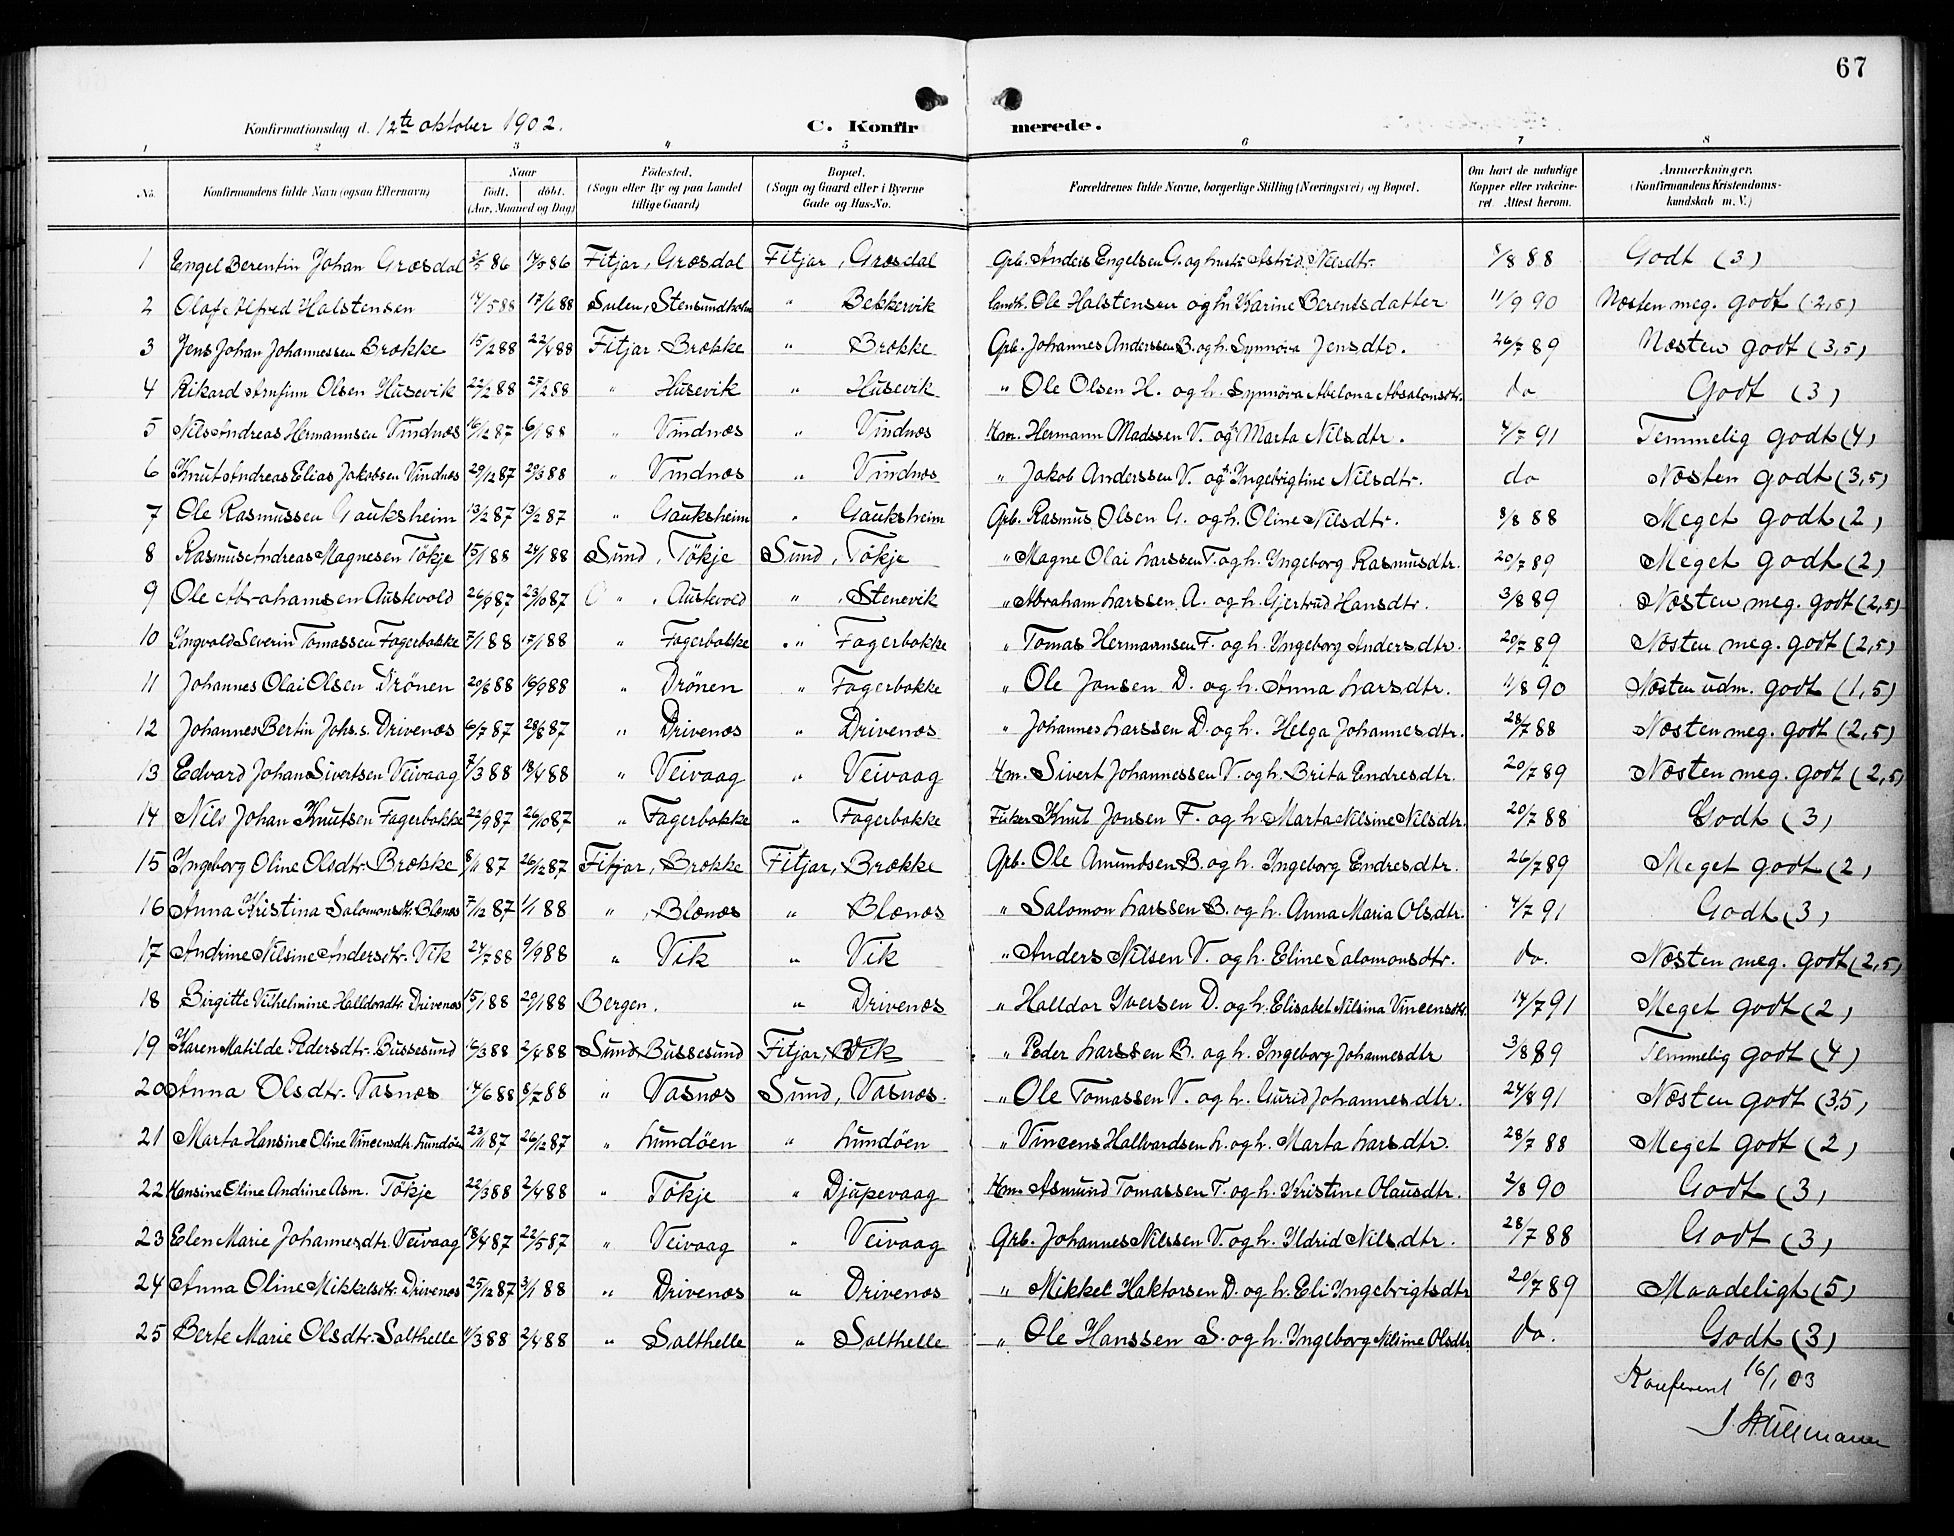 67
Konfirmationsdag d. 12te oktober 1902. C. Konfirmerede.
1 2 3 4 5 6 7 8
No. Konfirmandens fulde Navn (ogsaa Efternavn) Naar født. døbt. (Aar, Maaned og Dag) Fødested. (Sogn eller By og paa Landet tillige Gaard) Bopæl. (Sogn og Gaard eller i Byerne Gade og Hus-No. Forældrenes fulde Navne, borgerlige Stilling (Næringsvei) og Bopæl. Om havt de naturlige Kopper eller vakcineret. Attest herom. Anmærkninger. (Konfirmandens Kristendomskundskab m. V.)
1 Engel Berentin Johan Græsdal 86 86 Fitjar, Græsdal Fitjar, Græsdal Grb. Anders Engelsen G. og hustr. Astrid Nilsdtr. 8/8 88 Godt (3)
2 Olaf Alfred Halstensen 14/5 88 17/6 88 Sulen, Stensundholm " Bekkervik Landh. Ole Halstensen og h. Karine Berentsdatter 11/9 90 Næsten meg. godt (2,5)
3 Jens Johan Johannessen Brække 15/2 88 22/4 88 Fitjar Brække " Brække Grb. Johannes Anderssen B. og h. Synnøva Jensdtr. 26/7 89 Næsten godt (3,5)
4 Rikard Arnfinn Olsen Husevik 22/2 88 27/2 88 " Husevik " Husevik " Ole Olsen H. og h. Synnøva Abelona Absalonsdtr. do Godt (3)
5 Nils Andreas Hermannsen Vindnæs 16/12 87 6/1 88 " Vindnæs " Vindnæs Hm. Hermann Madssen V. og h. Marta Nilsdtr. 4/7 91 Temmelig godt (4)
6 Knut Andreas Elias Jakobsen Vindnæs 29/12 87 29/3 88 " Vindnæs " Vindnæs " Jakob Anderssen V. og h. Ingebrigtine Nilsdtr. do Næsten godt (3,5)
7 Ole Rasmussen Gauksheim 13/2 87 13/2 87 " Gauksheim " Gauksheim Grb. Rasmus Olsen G. og h. Oline Nilsdtr. 8/8 88 Meget godt (2)
8 Rasmus Andreas Magnesen Tökje 15/1 88 24/1 88 Sund, Tökje Sund, Tökje " Magne Olai Larssen T. og h. Ingeborg Rasmusdtr. 20/7 89 Meget godt (2)
9 Ole Abrahamsen Austevold 26/8 87 23/10 87 " , Austevold " , Stenevik " Abraham Larssen A. og h. Gjertrud Hansdtr. 3/8 89 Næsten meg. godt (2,5)
10 Ingvald Severin Tomassen Fagerbakke 7/1 88 17/1 88 " Fagerbakke " Fagerbakke " Tomas Hermannsen F. og h. Ingeborg Andersdtr. 20/7 89 Næsten meg. godt (2,5)
11 Johannes Olai Olsen Drönen 20/8 88 16/9 88 " Drönen " Fagerbakke " Ole Jansen D. og h. Anna Larsdtr. 11/8 90 Næsten udm. godt (1,5)
12 Johannes Bertin Johs.s. Drivenæs 6/7 87 28/8 87 " Drivenæs " Drivenæs " Johannes Larssen D. og h. Helga Johannesdtr. 28/7 88 Næsten meg. godt (2,5)
13 Edvard Johan Sivertsen Veivaag 7/3 88 18/4 88 " Veivaag " Veivaag Hm. Sivert Johannessen V. og h. Brita Endresdtr. 20/7 89 Næsten meg. godt (2,5)
14 Nils Johan Knutsen Fagerbakke 22/9 87 26/10 87 " Fagerbakke " Fagerbakke Fisker Knut Jansen F. og h. Marta Nilsine Nilsdtr. 20/7 88 Godt (3)
15 Ingeborg Oline Olsdtr. Brække 8/11 87 26/12 87 Fitjar, Brække Fitjar, Brække Grb. Ole Amundsen B. og h. Ingeborg Endresdtr. 26/7 89 Meget godt (2)
16 Anna Kristina Salomonsdtr. Blænæs 7/12 87 1/1 88 " , Blænæs " Blænæs " Salomon Larssen B. og h. Anna Maria Olsdtr. 4/7 91 Godt (3)
17 Andrine Nilsine Andersdtr. Vik 24/7 88 9/9 88 " Vik " Vik " Anders Nilsen V. og h. Eline Salomonsdtr. do. Næsten meg. godt (2,5)
18 Birgitte Vilhelmine Halldorsdtr. Drivenæs 15/1 88 29/1 88 Bergen. " Drivenæs " Halldor Iversen D. og h. Elisabet Nilsina Vincensdtr. 14/7 91 Meget godt (2)
19 Karen Matilde Pedersdtr. Bussesund 16/3 88 2/4 88 Sund Bussesund Fitjar, Vik " Peder Larssen B. og h. Ingeborg Johannesdtr 3/8 89 Temmelig godt (4)
20 Anna Olsdtr. Vasnæs 14/6 88 8/7 88 " Vasnæs Sund, Vasnæs. " Ole Tomassen V. og h. Gurid Johannesdtr. 24/8 91 Næsten godt (3,5)
21 Marta Hansine Oline Vincensdtr. Lundöen 23/11 87 26/12 87 " Lundöen " Lundöen " Vincens Hallvardsen L. og h. Marta Larsdtr. 28/7 88 Meget godt (2)
22 Hansine Eline Andrine Asm. Tökje 22/3 88 2/4 88 " Tökje " Djupevaag Hm. Asmund Tomassen T. og h. Kristine Olausdtr. 2/8 90 Godt (3)
23 Elen Marie Johannesdtr. Veivaag 18/4 87 22/5 87 " Veivaag " Veivaag Grb. Johannes Nilssen V. og h. Ildrid Nilsdtr. 28/7 88 Godt (3)
24 Anna Oline Mikkelsdtr. Drivenæs 25/12 87 3/1 88 " Drivenæs " Drivenæs " Mikkel Haktorsen D. og h. Eli Ingebrigtsdtr 20/7 89 Maadeligt (5)
25 Berte Marie Olsdtr. Salthelle 11/3 88 2/4 88 " Salthelle " Salthelle " Ole Hanssen S. og h. Ingeborg Nilsine Olsdtr. do. Godt (3)
Konferert 16/1 03